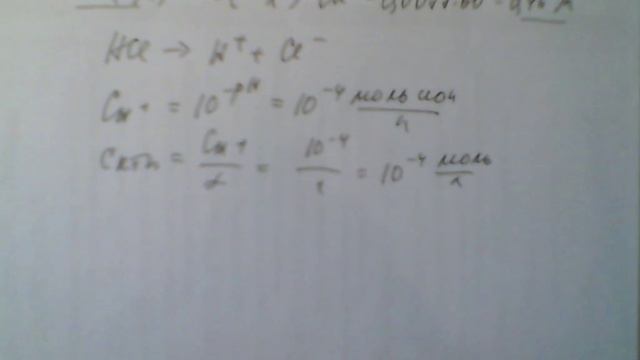 HCl → H⁺ + Cl⁻
C_H⁺ = 10^-pH = 10⁻⁴ моль ион/л
C к-ты = C_H⁺/α = 10⁻⁴/1 = 10⁻⁴ моль/л